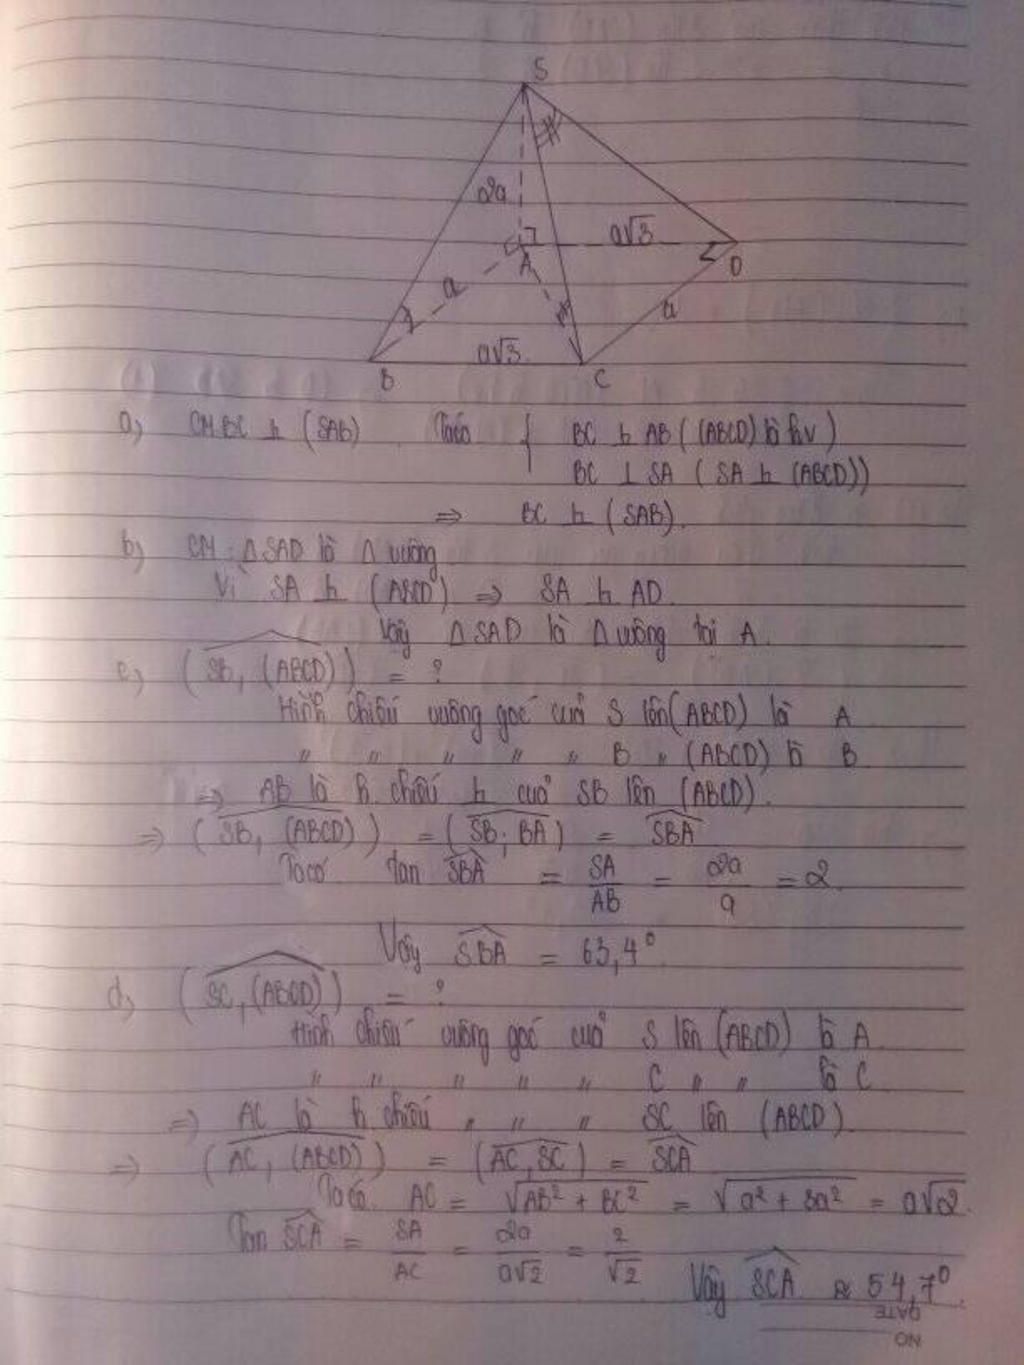 S
2a
a√3
A
D
a
a
a√3
B
C
a, CM BC ⊥ (SAB). Ta có { BC ⊥ AB ((ABCD) là hv)
BC ⊥ SA (SA ⊥ (ABCD))
⇒ BC ⊥ (SAB).
b, CM: Δ SAD là Δ vuông
Vì SA ⊥ (ABCD) ⇒ SA ⊥ AD.
Vậy Δ SAD là Δ vuông tại A.
c, (SB, (ABCD)) = ?
Hình chiếu vuông góc của S lên (ABCD) là A
" " " " " B " (ABCD) là B
⇒ AB là h. chiếu ⊥ của SB lên (ABCD).
⇒ (SB, (ABCD)) = (SB; BA) = SBA
Ta có tan SBA = SA/AB = 2a/a = 2.
Vậy SBA = 63,4°
d, (SC, (ABCD)) = ?
Hình chiếu vuông góc của S lên (ABCD) là A
" " " " " C " " là C
⇒ AC là h chiếu " " " SC lên (ABCD).
⇒ (AC, (ABCD)) = (AC, SC) = SCA
Ta có. AC = √AB² + BC² = √a² + 3a² = a√2.
Tan SCA = SA/AC = 2a/a√2 = 2/√2
Vậy SCA ≈ 54,7°.
DATE
NO